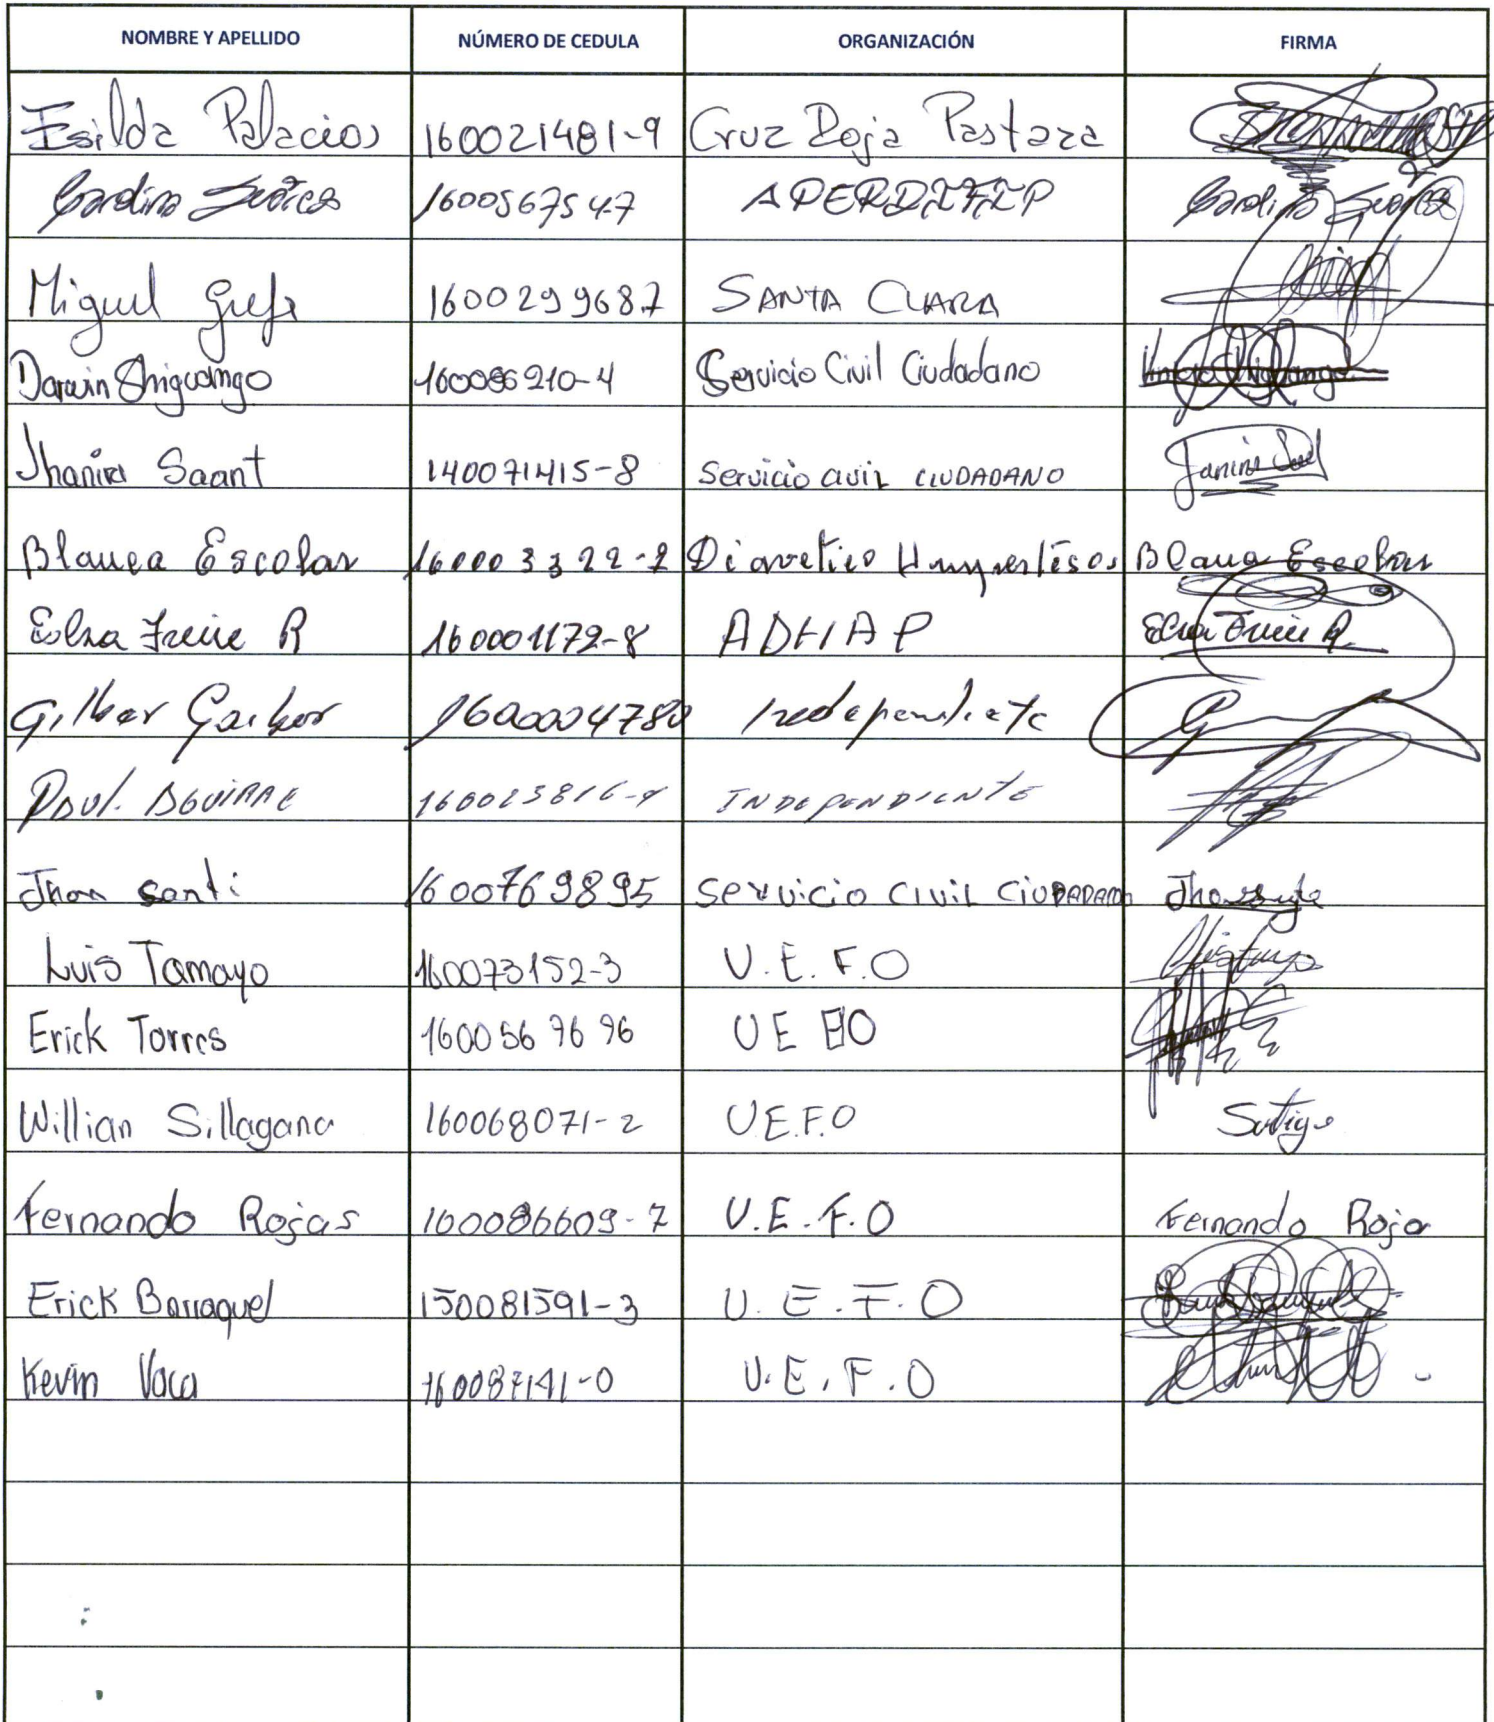 NOMBRE Y APELLIDO NÚMERO DE CEDULA ORGANIZACIÓN FIRMA
Esilda Palacios 160021481-9 Cruz Roja Pastaza
Carolina Suárez 160056754-7 APERDIFIP Carolina Suárez
Miguel Grefa 160029968.7 SANTA CLARA
Darwin Shiguango 160086210-4 Servicio Civil Ciudadano
Jhanira Saant 140071415-8 Servicio civil CIUDADANO
Blanca Escobar 160003322-2 Diavetico Hunpertesos Blanca Escobar
Elsa Freire R 160001172-8 ADHAP Elsa Freire R.
Gilber 1600004780 Independiete
Paul. AGUIRRE INDEPENDIENTE
Jhon santi 1600769895 servicio civil CiUDADANO
Luis Tamayo 160073152-3 U.E.F.O
Erick Torres 1600567696 UE FO
Willian Sillagana 160068071-2 U.E.F.O
Fernando Rojas 160086609-7 U.E.F.O Fernando Roja
Erick Barraquel 150081591-3 U.E.F.O
Kevin Vaca 160087141-0 U.E.F.O